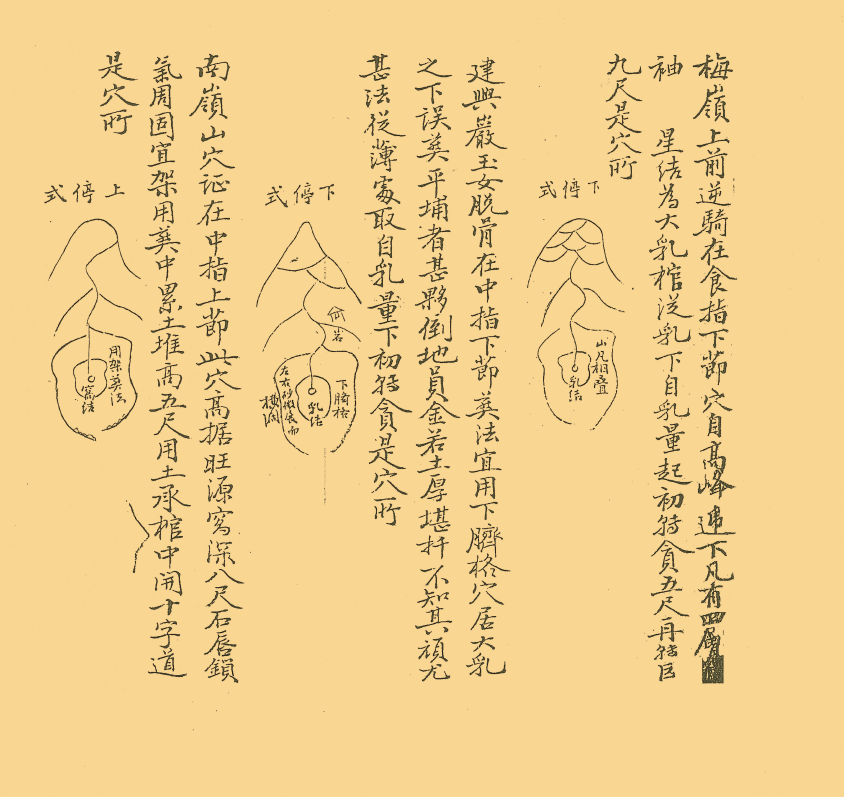 梅嶺上前逆騎在食指下節穴自高峰遞下凡有四層
袖 星結為大乳棺從乳下自乳量起初貪五尺再
九尺是穴所
下停式
山凡相叠
乳結
建興巖玉女脱骨在中指下節葬法宜用下臍格穴居大乳
之下誤葬平埔者甚夥倒地員金若土厚堪扞不知其頑尤
甚法從薄處取自乳量下初貪是穴所
下停式
下臍格
乳結
左右砂
南嶺山穴证在中指上節此穴高据旺源窩深八尺石唇鎖
氣周固宜架用葬中累土堆高五尺用土承棺中開十字道
是穴所
上停式
用架葬法
窩結